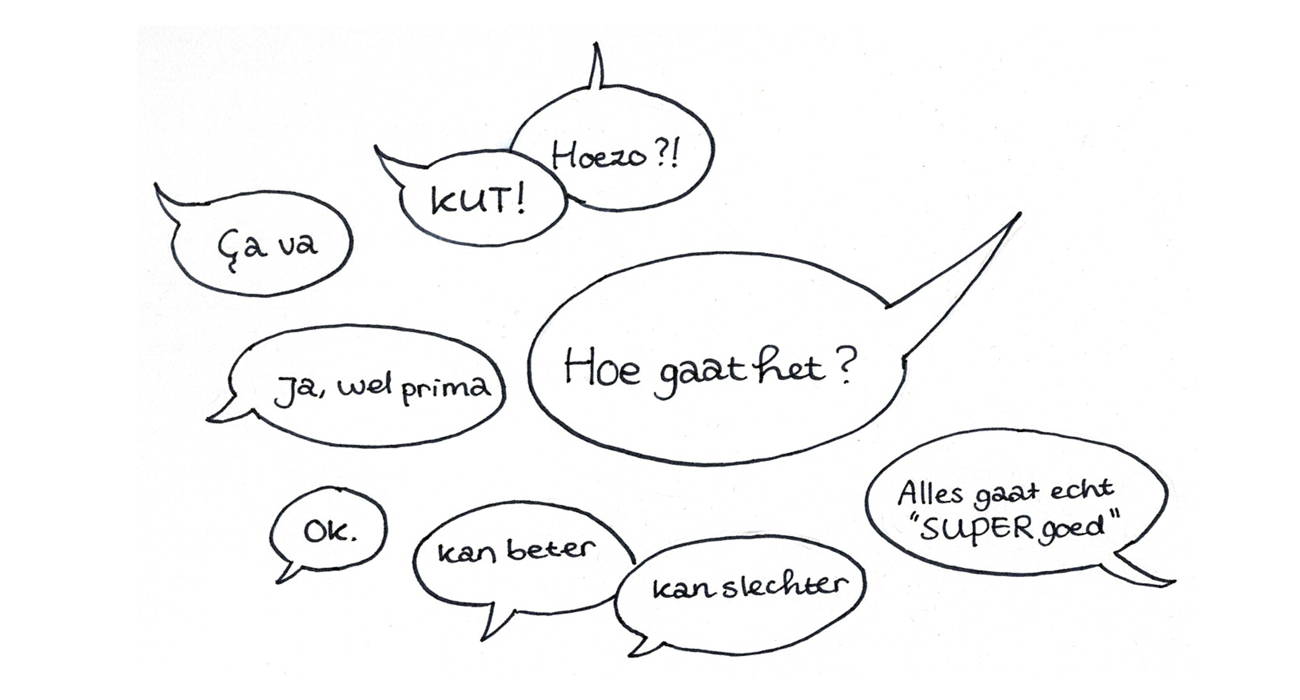 Hoezo?!
KUT!
Ça va
Hoe gaat het?
Ja, wel prima
Alles gaat echt
"SUPER goed"
Ok.
kan beter
kan slechter